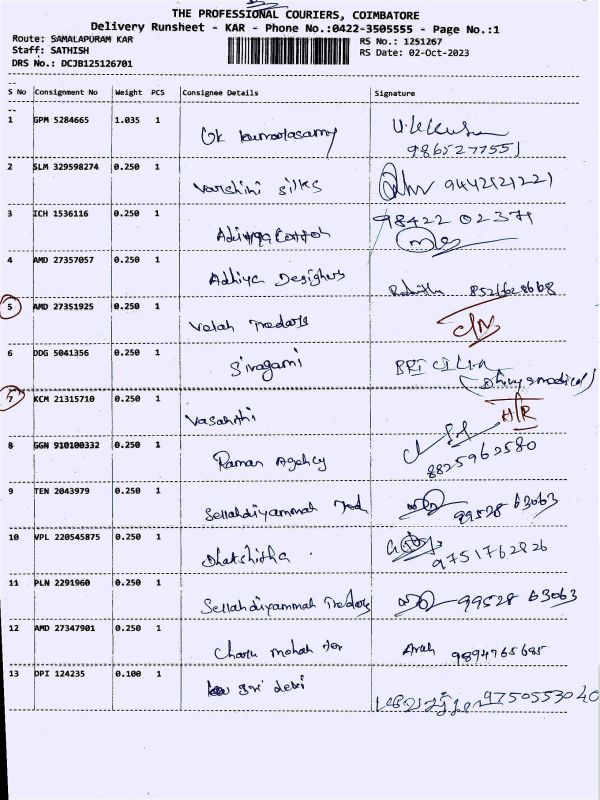 THE PROFESSIONAL COURIERS, COIMBATORE
Delivery Runsheet - KAR - Phone No.:0422-3505555 - Page No.:1
Route: SAMALAPURAM KAR
RS No.: 1251267
Staff: SATHISH
RS Date: 02-Oct-2023
DRS No.: DCJB125126701
S No Consignment No Weight PCS Consignee Details Signature
1 GPM 5284665 1.035 1
9865277551
2 SLM 329598274 0.250 1 Varshini silks 9442121221
3 ICH 1536116 0.250 1 98422 02371
4 AMD 27357057 0.250 1 Adhiya Designers
5 AMD 27351925 0.250 1 Traders C/N
6 DDG 5041356 0.250 1 Sivagami
7 KCM 21315710 0.250 1 Vasanthi H/R
8 GGN 910100332 0.250 1 Raman Agency 8825962580
9 TEN 2043979 0.250 1 Sellahdiyammah 99528 63063
10 VPL 220545875 0.250 1 Dhakshitha 9751762826
11 PLN 2291960 0.250 1 Sellahdiyammah Traders 99528 63063
12 AMD 27347901 0.250 1 Charu mohan 9894765685
13 DPI 124235 0.100 1 Sri devi 9750553040